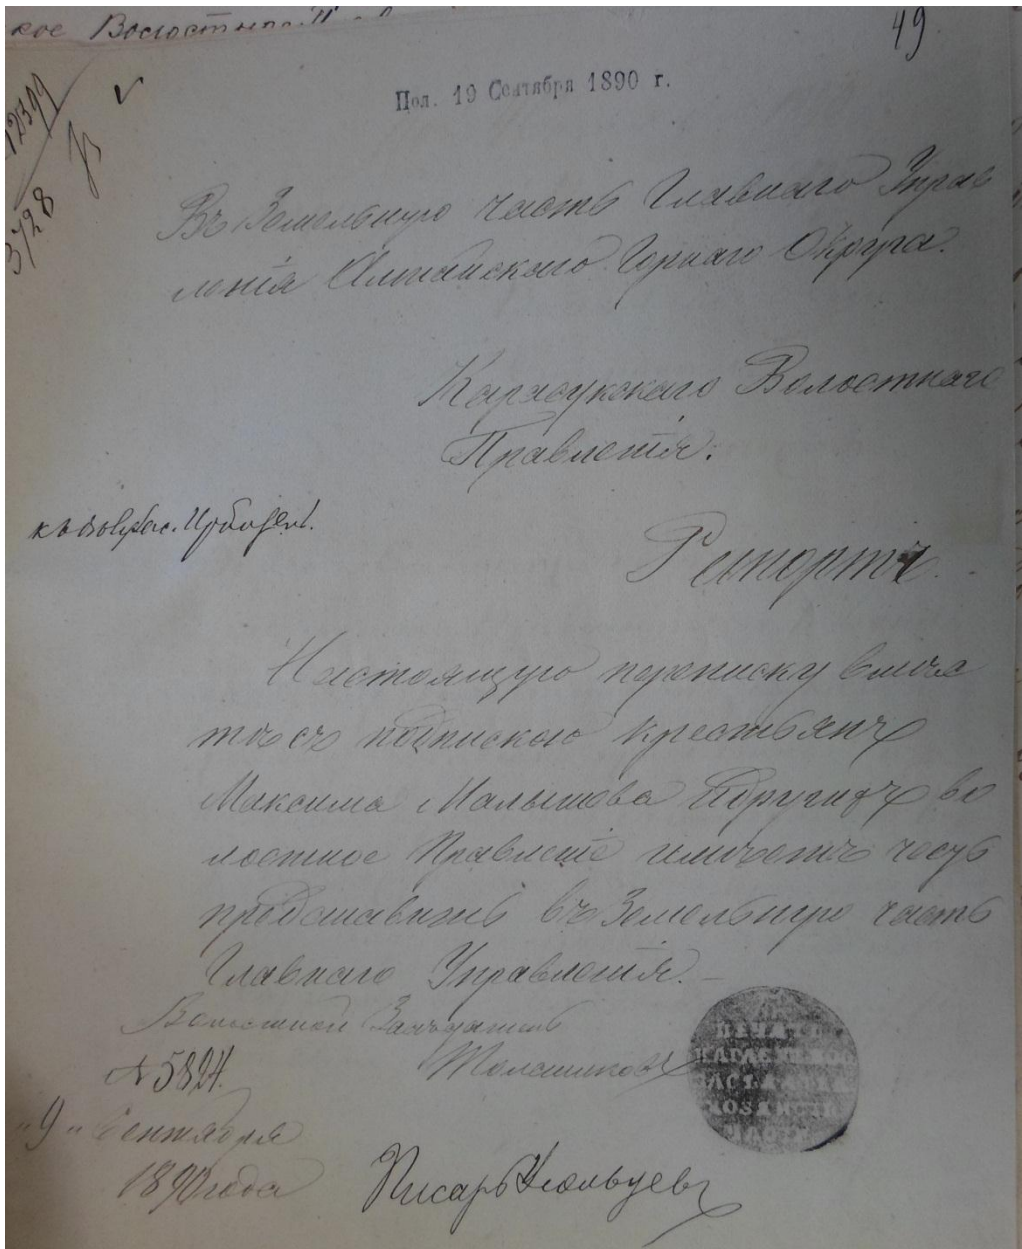 кое Волостное
49
Пол. 19 Сентября 1890 г.
12399
3728
Въ Земельную часть Главнаго Управ
ленія Алтайскаго Горнаго Округа.
Карасукскаго Волостнаго
Правленія.
Рапортъ.
Настоящую переписку вмѣсте
съ подпискою крестьянъ
Максима Малышова и другихъ во
лостное Правленіе имѣетъ честь
представить въ Земельную часть
Главнаго Управленія.
Волостной Засѣдатель
№ 5824.
"9" Сентября
1890 года
Писарь
ПЕЧАТЬ